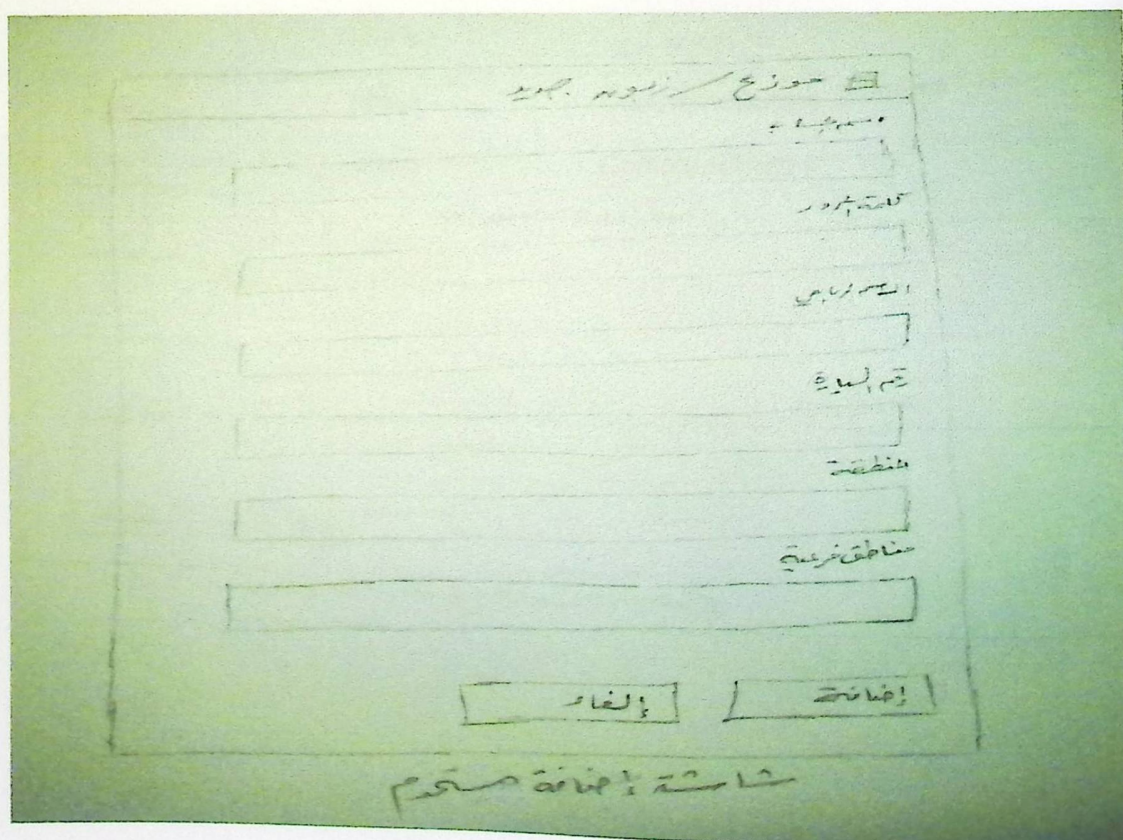 موزع / زبون جديد
اسم الحساب
كلمة المرور
الاسم الرباعي
رقم السيارة
المنطقة
مناطق فرعية
إضافة
إلغاء
شاشة إضافة مستخدم